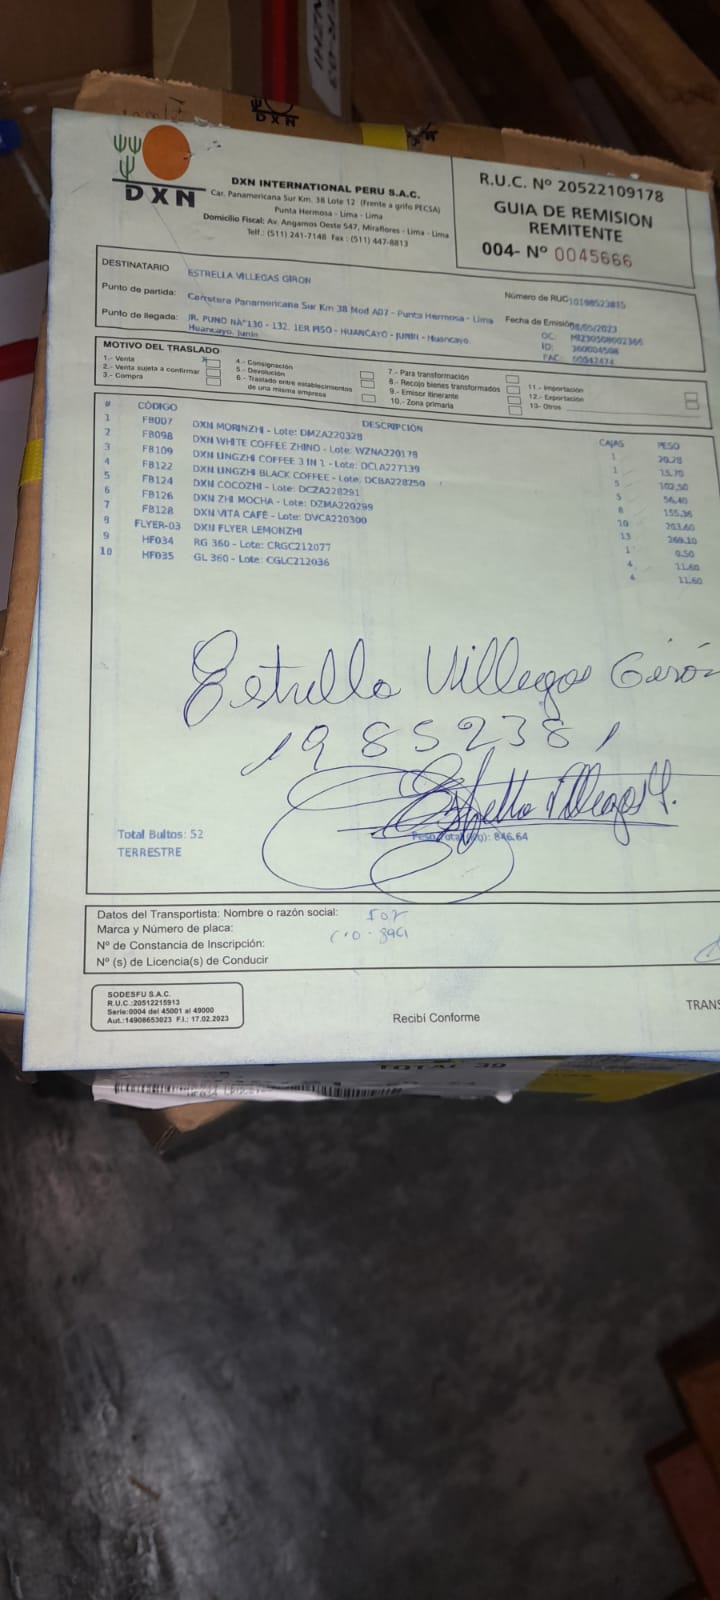 DXN
DXN
DXN INTERNATIONAL PERU S.A.C.
Car. Panamericana Sur Km. 38 Lote 12 (Frente a grifo PECSA)
Punta Hermosa - Lima - Lima
Domicilio Fiscal: Av. Angamos Oeste 547, Miraflores - Lima - Lima
Telf.: (511) 241-7148 Fax : (511) 447-8813
R.U.C. Nº 20522109178
GUIA DE REMISION
REMITENTE
004- Nº 0045666
DESTINATARIO ESTRELLA VILLEGAS GIRON
Número de RUC 10198523815
Punto de partida: Carretera Panamericana Sur Km 38 Mod A07 - Punta Hermosa - Lima
Fecha de Emisión 08/05/2023
Punto de llegada: JR. PUNO NÂ°130 - 132. 1ER PISO - HUANCAYO - JUNIN - Huancayo.
Huancayo. Junin
OC:
ID:
FAC:
MOTIVO DEL TRASLADO
1.- Venta
2.- Venta sujeta a confirmar
3.- Compra
4.- Consignación
5.- Devolución
6.- Traslado entre establecimientos
de una misma empresa
7.- Para transformación
8.- Recojo bienes transformados
9.- Emisor Itinerante
10.- Zona primaria
11.- Importación
12.- Exportación
13- Otros
# CÓDIGO DESCRIPCIÓN CAJAS PESO
1 FB007 DXN MORINZHI - Lote: DMZA220328 1
2 FB098 DXN WHITE COFFEE ZHINO - Lote: WZNA220178 1 15.70
3 FB109 DXN LINGZHI COFFEE 3 IN 1 - Lote: DCLA227139 5 102.50
4 FB122 DXN LINGZHI BLACK COFFEE - Lote: DCBA228250 5 56.40
5 FB124 DXN COCOZHI - Lote: DCZA228291 8 155.36
6 FB126 DXN ZHI MOCHA - Lote: DZMA220299 10 203.60
7 FB128 DXN VITA CAFÉ - Lote: DVCA220300 13 269.10
8 FLYER-03 DXN FLYER LEMONZHI 1 0.50
9 HF034 RG 360 - Lote: CRGC212077 4 11.60
10 HF035 GL 360 - Lote: CGLC212036 4 11.60
Estrella Villegas Girón
19852381
Estrella Villegas
Total Bultos: 52
Peso Total (Kg): 846.64
TERRESTRE
Datos del Transportista: Nombre o razón social:
Marca y Número de placa:
Nº de Constancia de Inscripción:
Nº (s) de Licencia(s) de Conducir
SODESFU S.A.C.
R.U.C.:20512215913
Serie:0004 del 45001 al 49000
Aut.:14908653023 F.I.: 17.02.2023
Recibí Conforme
TRANS
TOTAL 39